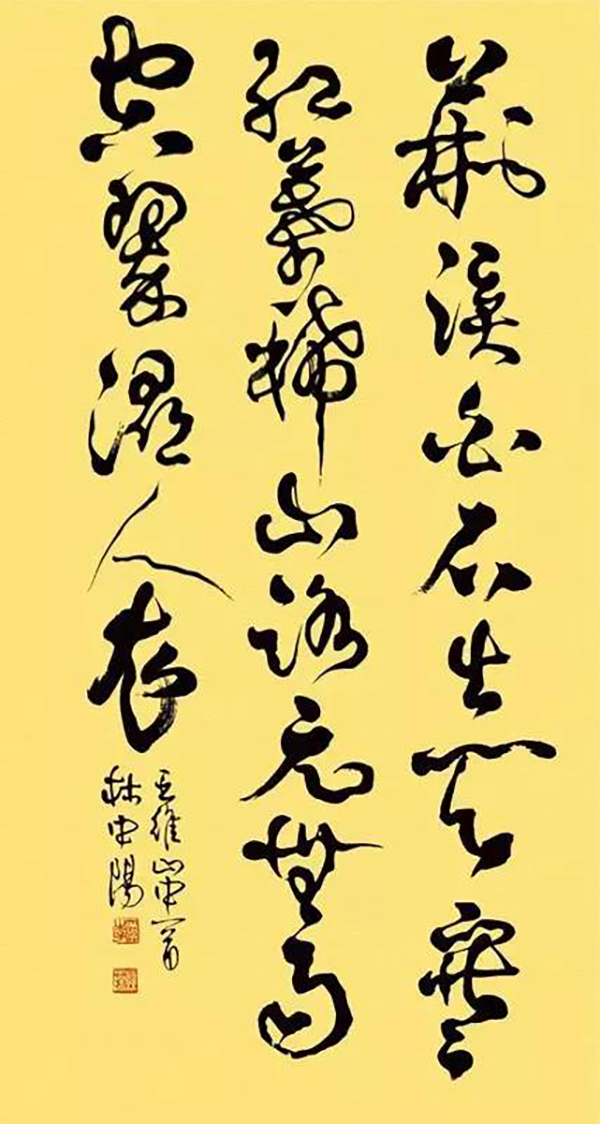 荊溪白石出天寒
紅葉稀山路元無雨
空翠濕人衣
王維山中一首
林中陽